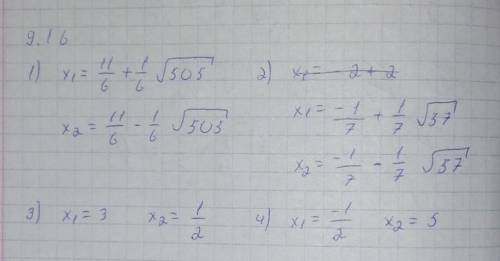 9.16
1) x₁ = 11/6 + 1/6 √505
x₂ = 11/6 - 1/6 √505
2) x₁ = - 2 + 2
x₁ = -1/7 + 1/7 √37
x₂ = -1/7 - 1/7 √37
3) x₁ = 3 x₂ = 1/2
4) x₁ = -1/2 x₂ = 5